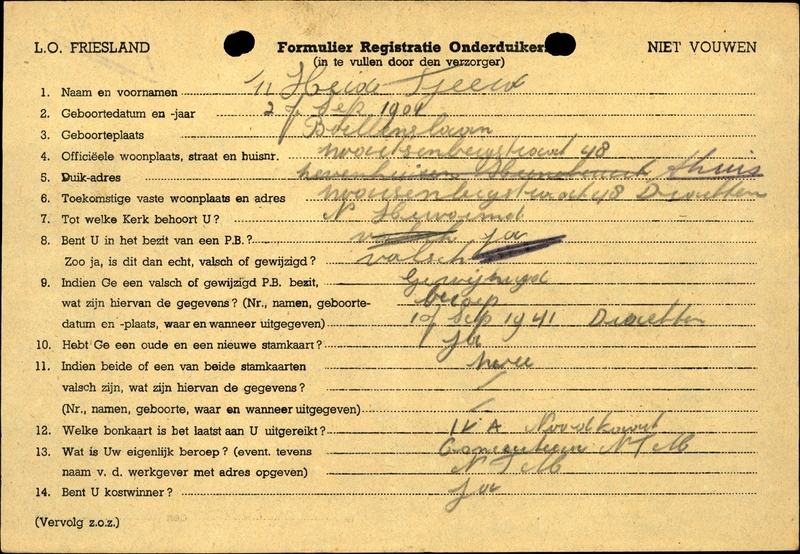 L.O. FRIESLAND Formulier Registratie Onderduikers NIET VOUWEN
(in te vullen door den verzorger)
1. Naam en voornamen v Heide Sjeerd
2. Geboortedatum en -jaar 27 Sep 1904
3. Geboorteplaats Boelenslaan
4. Officiëele woonplaats, straat en huisnr. 48
5. Duik-adres thuis
6. Toekomstige vaste woonplaats en adres 48 Drachten
7. Tot welke Kerk behoort U? N Hervormd
8. Bent U in het bezit van een P.B.? ja
Zoo ja, is dit dan echt, valsch of gewijzigd? valsch
9. Indien Ge een valsch of gewijzigd P.B. bezit, Gewijzigd
wat zijn hiervan de gegevens? (Nr., namen, geboorte- beroep
datum en -plaats, waar en wanneer uitgegeven) Sep 1941 Drachten
10. Hebt Ge een oude en een nieuwe stamkaart? ja
11. Indien beide of een van beide stamkaarten
valsch zijn, wat zijn hiervan de gegevens?
(Nr., namen, geboorte, waar en wanneer uitgegeven)
12. Welke bonkaart is het laatst aan U uitgereikt? A Noodkaart
13. Wat is Uw eigenlijk beroep? (event. tevens NTM
naam v. d. werkgever met adres opgeven) NTM
14. Bent U kostwinner? ja
(Vervolg z.o.z.)